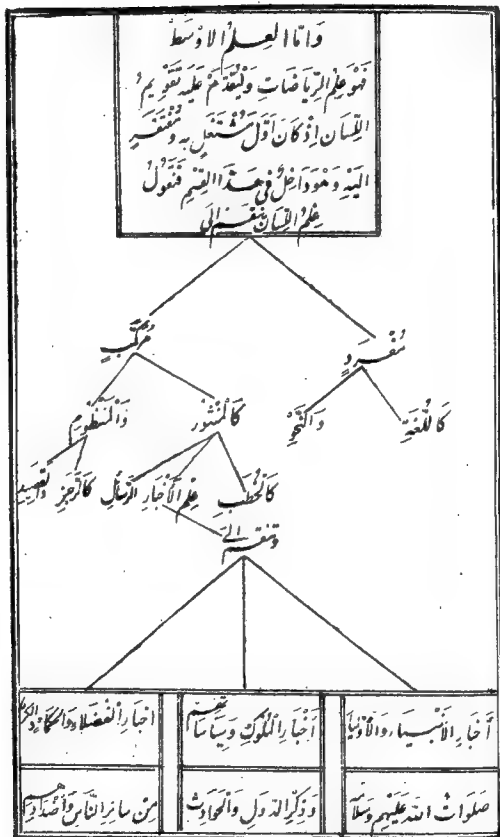 وَامّا العِلمُ الاوْسَط
فَهُوَ عِلمُ الرِّيَاضَاتِ وَلْيُقَدَّمْ عَلَيْهِ تَقْوِيمُ
اللِّسَانِ اِذْ كَانَ اَوَّلَ مُشْتَغَلٍ بِهِ وَمُفْتَقَرٍ
اِلَيْهِ وَهُوَ دَاخِلٌ فِى هٰذَا القِسْمِ فَنَقُولُ
عِلْمُ اللِّسَانِ يَنْقَسِمُ اِلَى
مُفْرَدٍ
مُرَكَّبٍ
كَاللُّغَةِ
وَالنَّحْوِ
كَالْمَنْثُورِ
وَالْمَنْظُومِ
كَالْخُطَبِ
عِلْمُ الْاَخْبَارِ
الرَّسَائِل
كَالرَّجَزِ
وَالْقَصِيدِ
وَتَنْقَسِمُ اِلَى
اَخْبَارِ الْاَنْبِيَاءِ وَالْاَوْلِيَا
صَلَوَاتُ اللهِ عَلَيْهِمْ وَسَلَامُ
اَخْبَارِ الْمُلُوكِ وَسِيَاسَاتِهِمْ
وَذِكْرِ الدُّوَلِ وَالْحَوَادِث
اخْبَارِ الْفُضَلَاءِ وَالْحُكَمَاءِ
مِنْ سَائِرِ النَّاسِ وَأَضْدَادِهِمْ